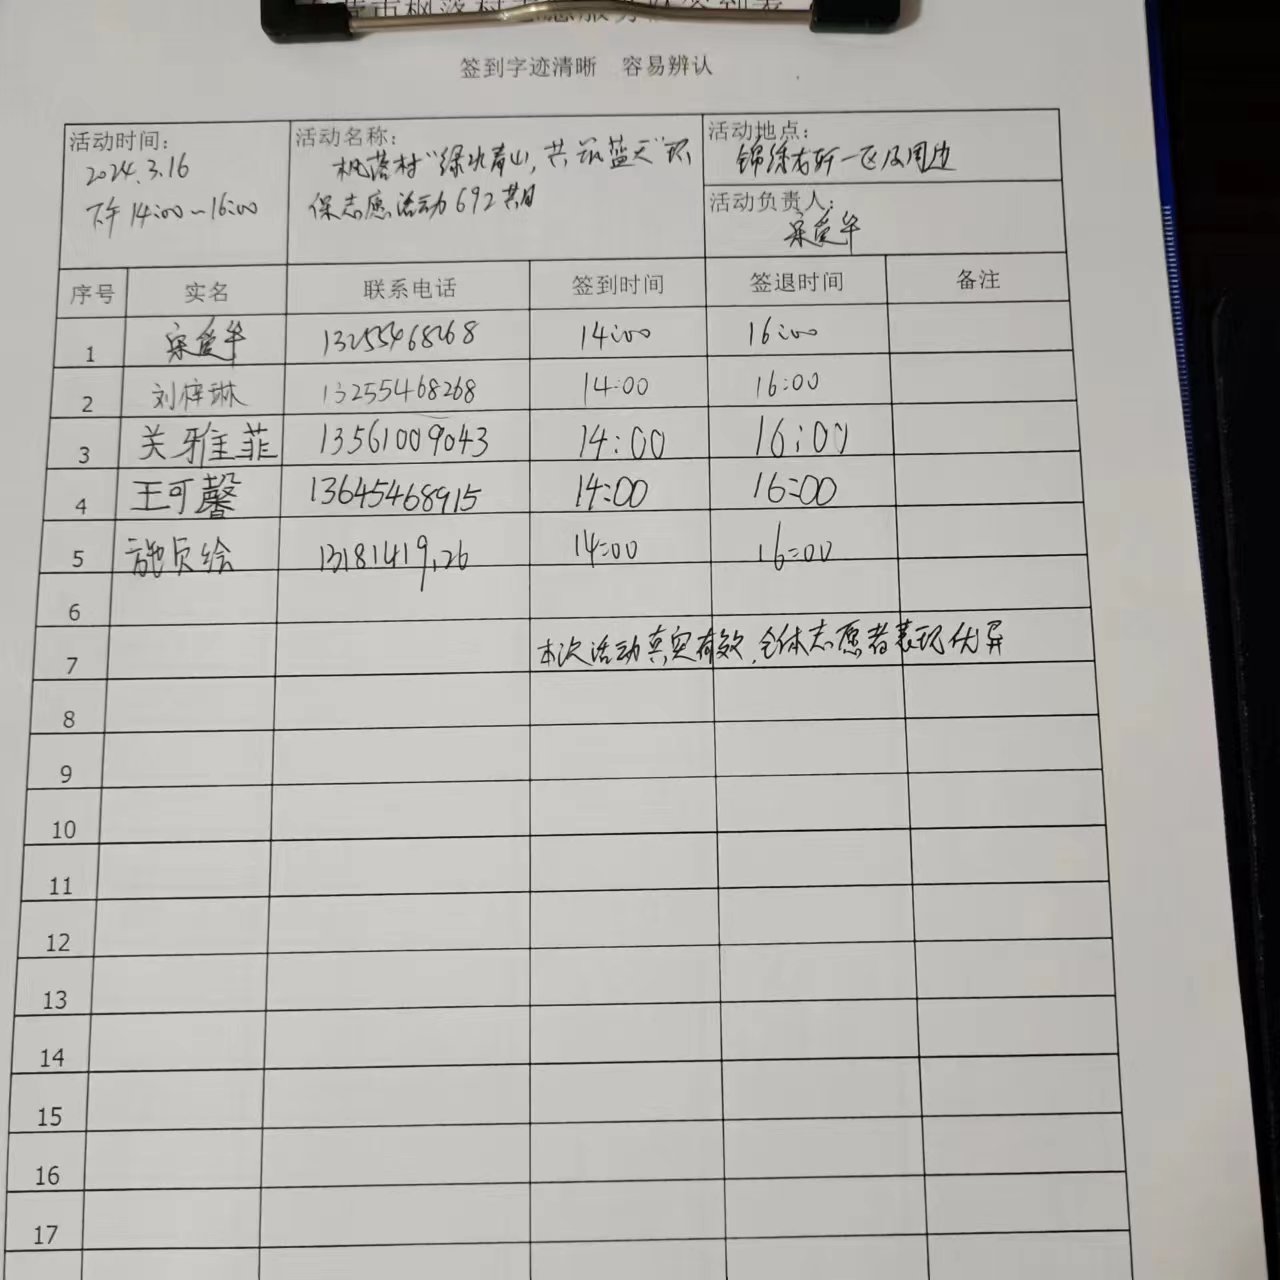 签到字迹清晰 容易辨认
活动时间:
2024.3.16
下午 14:00~16:00
活动名称:
枫落村"绿水青山,共筑蓝天"环
保志愿活动692期
活动地点:
锦绣东轩一区及周边
活动负责人:
宋爱华
序号 实名 联系电话 签到时间 签退时间 备注
1 宋爱华 13255468268 14:00 16:00
2 刘梓琳 13255468268 14:00 16:00
3 关雅菲 13561009043 14:00 16:00
4 王可馨 13645468915 14:00 16:00
5 施贞绘 14:00 16:00
6
7 本次活动真实有效,全体志愿者表现优异
8
9
10
11
12
13
14
15
16
17